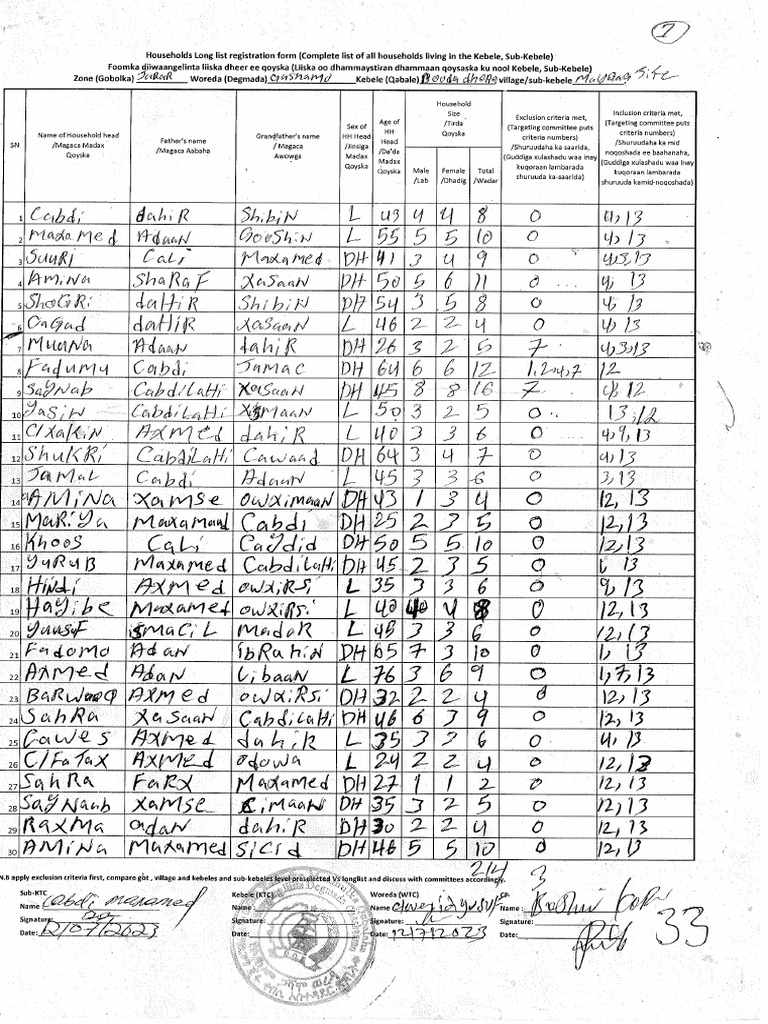 1
Households Long list registration form (Complete list of all households living in the Kebele, Sub-Kebele)
Foomka diiwaangelinta liiska dheer ee qoyska (Liiska oo dhammaystiran dhammaan qoysaska ku nool Kebele, Sub-Kebele)
Zone (Gobolka) Jarar Woreda (Degmada) Gashamo Kebele (Qabale) village/sub-kebele Site
SN Name of Household head /Magaca Madax Qoyska Father's name /Magaca Aabaha Grandfather's name / Magaca Awowga Sex of HH Head /Jinsiga Madax Qoyska Age of HH Head /Da'da Madax Qoyska Household Size /Tirda Qoyska Male /Lab Female /Dhadig Total /Wadar Exclusion criteria met, (Targeting committee puts criteria numbers) /Shuruudaha ka saarida, (Guddiga xulashadu waa inay kuqoraan lambarada shuruuda ka-saarida) Inclusion criteria met, (Targeting committee puts criteria numbers) /Shuruudaha ka mid noqoshada ee baahanaha, (Guddiga xulashadu waa inay kuqoraan lambarada shuruuda kamid-noqoshada)
1 Cabdi dahiR ShibiN L 43 4 4 8 0 4,13
2 Maxamed Adaan GooShiN L 55 5 5 10 0 4,13
3 SuuRi Cali Maxamed DH 41 3 4 9 0 4,3,13
4 AMiNa ShaRaF XaSaaN DH 50 5 6 11 0 4, 13
5 ShoGRi daHiR ShibiN DH 54 3 5 8 0 4, 13
6 CaGad daHiR XaSaaN L 46 2 2 4 0 4,13
7 MuuNa Adaan dahiR DH 26 3 2 5 7 4,3,13
8 Fadumu Cabdi Jamac DH 64 6 6 12 1,2,4,7 12
9 SayNab CabdiLaHi XaSaaN DH 45 8 8 16 7 12
10 YaSiN CabdiLaHi L 50 3 2 5 0 13,12
11 C/XaKiN AXMed dahiR L 40 3 3 6 0 4,9,13
12 ShuKRi CabdiLaHi Cawaad DH 64 3 4 7 0 13
13 JaMaL Cabdi Adaan L 45 3 3 6 0 3,13
14 AMiNa XaMSe owXiMaaN DH 43 1 3 4 0 12, 13
15 MaRiYa Maxamaad Cabdi DH 25 2 3 5 0 12,13
16 Khoos Cali Caydid DH 50 5 5 10 0 12,13
17 YuRuB Maxamed CabdiLaHi DH 45 2 3 5 0 13
18 Hindi AXMed owXiRSi L 35 3 3 6 0 9, 13
19 Hayibe Maxamed owXiRSi L 40 4 8 0 12, 13
20 YuuSuF iSMaCiL MadaR L 45 3 3 6 0 12,13
21 Fadomo Adan ibRahiN DH 65 7 3 10 0 1, 13
22 AXMed Adan LibaaN L 76 3 6 9 0 1,7,13
23 BaRwaaqo AXMed owXiRSi DH 32 2 2 4 0 12, 13
24 SahRa XaSaaN CabdiLaHi DH 46 6 3 9 0 12, 13
25 Cawes AXMed dahiR L 35 3 3 6 0 4, 13
26 C/FaTaX AXMed odowa L 24 2 2 4 0 12, 13
27 SahRa FaRX Maxamed DH 27 1 1 2 0 12, 13
28 SayNaab XaMSe CiMaaN DH 35 3 2 5 0 12, 13
29 RaXMa adaN dahiR DH 30 2 2 4 0 12, 13
30 AMiNa Maxamed SiCid DH 46 5 5 10 0 12, 13
214 3
N.B apply exclusion criteria first, compare got , village and kebeles and sub-kebeles level preselected Vs longlist and discuss with committees accordingly.
Sub-KTC Kebele (KTC) Woreda (WTC)
Name Cabdi maxamed Name Name Name :
Signature: Signature: Signature: Signature:
Date: 12/07/2023 Date: Date: 12/7/2023 Date:
33